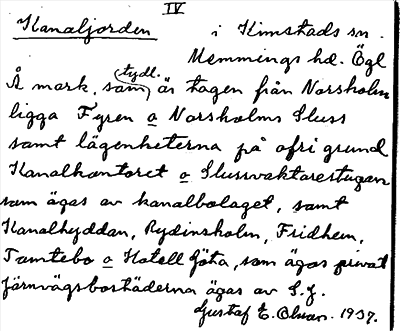 IV
Kanaljorden i Kimstads sn.
Memmings hd. Ögl
Å mark, som tydl. är tagen från Norsholm
ligga Fyren o Norsholms Sluss
samt lägenheterna på ofri grund
Kanalkontoret o Slussvaktarestugan
som ägas av kanalbolaget, samt
Kanalhyddan, Rydinsholm, Fridhem,
Tomtebo o Hotell Göta, som ägas privat
Järnvägsbostäderna ägas av S.J.
Gustaf E. Olsson. 1937.